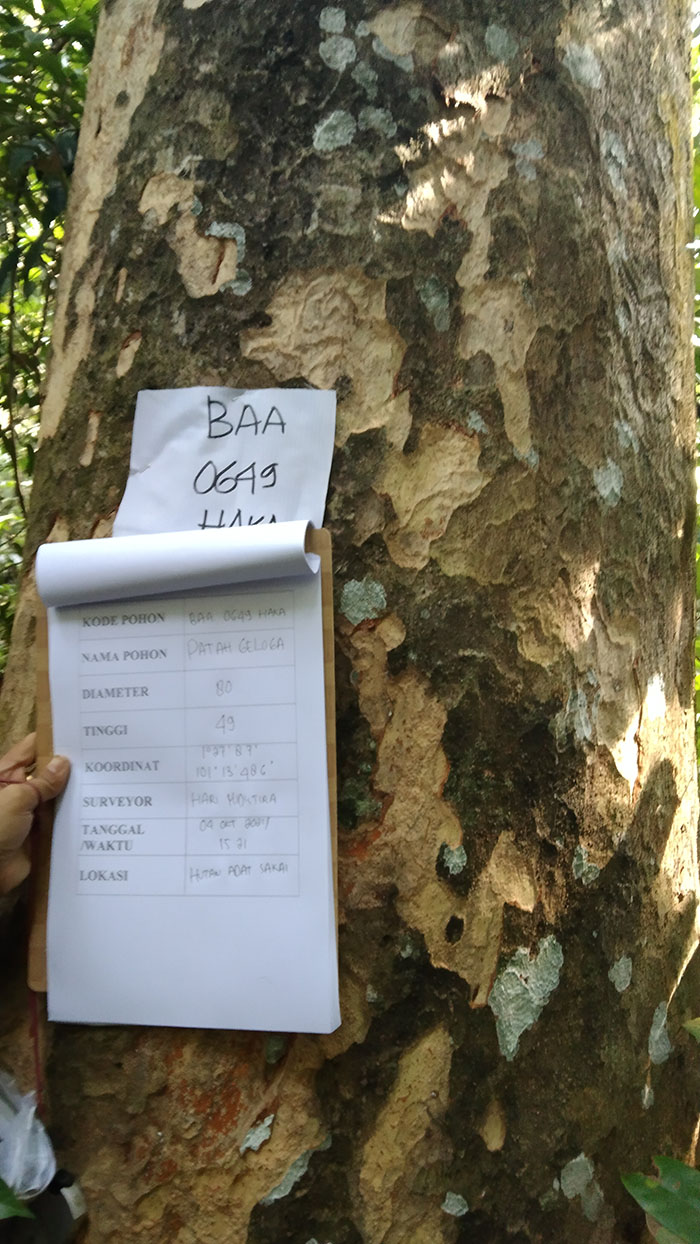 BAA
0649
HAKA
KODE POHON BAA 0649 HAKA
NAMA POHON PATAH GELUGA
DIAMETER 80
TINGGI 49
KOORDINAT 1°27'87"
101°13'486"
SURVEYOR HARI
TANGGAL 04 OKT 2024
/WAKTU 15 21
LOKASI HUTAN ADAT SAKAI